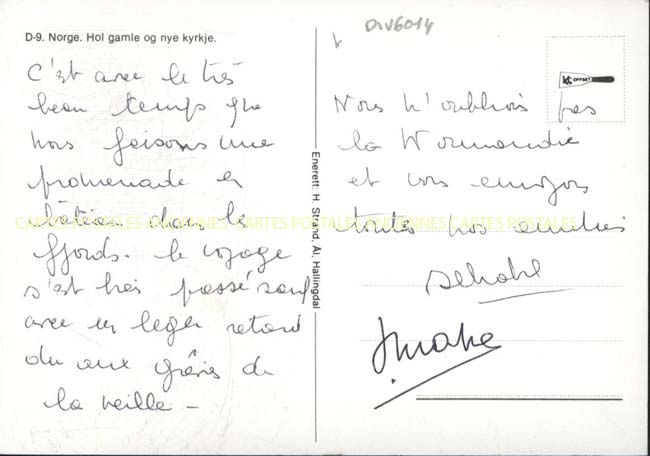 D-9. Norge. Hol gamle og nye kyrkje.
C'est avec le très
beau temps que
nous faisons une
promenade en
bâteau dans le
fjords. le voyage
s'est très passé sauf
avec un leger retard
du aux grèves de
la veille -
Enerett: H. Strand, Ål, Hallingdal
DIV6014
OFFSET
Nous n'oublions pas
la Normandie
et vous envoyons
toutes nos amitiés
CARTES POSTALES ANCIENNES CARTES POSTALES ANCIENNES CARTES POSTALES